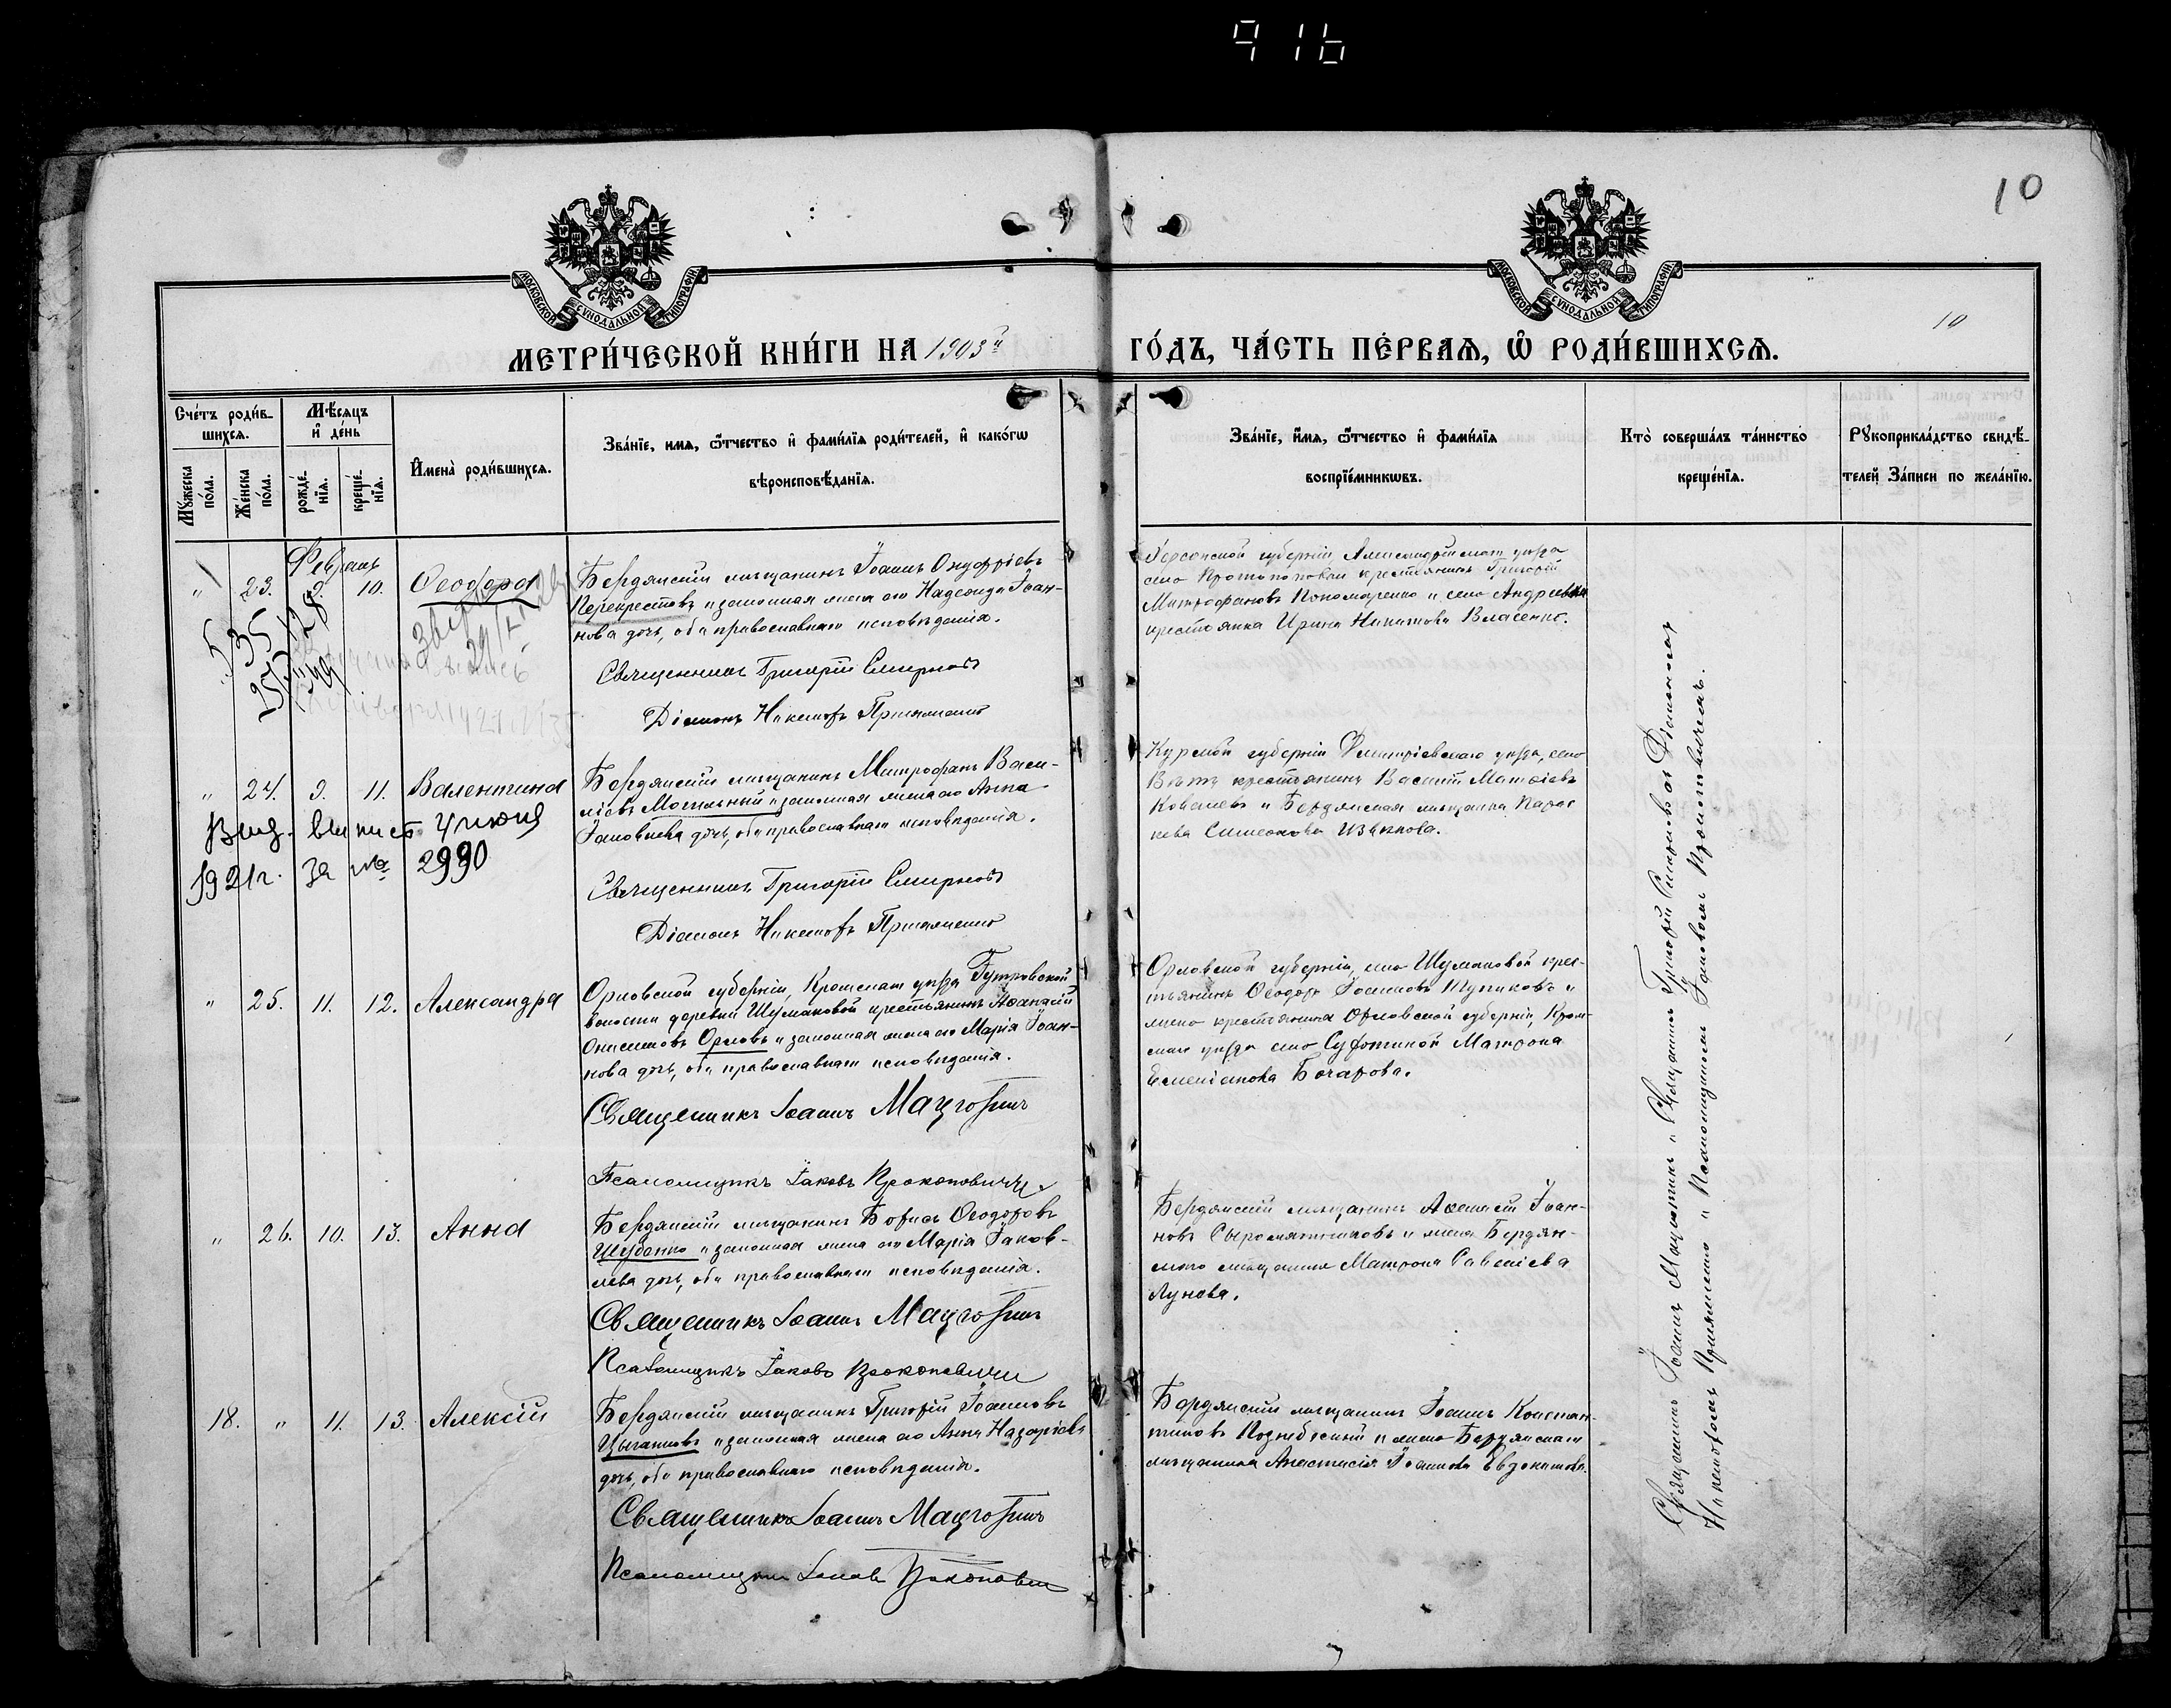 916
10
МОСКОВСКОЙ СѴНОДАЛЬНОЙ ТИПОГРАФІИ
МОСКОВСКОЙ СѴНОДАЛЬНОЙ ТИПОГРАФІИ
10
МЕТРИ́ЧЕСКОЙ КНИ́ГИ НА 1903й
ГО́ДЪ, ЧА́СТЬ ПЕ́РВАѦ, Ѡ РОДИ́ВШИХСѦ.
Сче́тъ роди́в-
шихсѧ.
Мꙋ́жеска по́ла.
Же́нска по́ла.
Мѣ́сѧцъ и҆ де́нь
рожде́-
нїѧ.
креще́-
нїѧ.
И҆мена̀ роди́вшихсѧ.
Зва́нїе, имѧ, ѻ҆́тчество и҆ фами́лїѧ роди́телей, и҆ како́гѡ
вѣроисповѣ́данїѧ.
Зва́нїе, и҆́мѧ, ѻ҆́тчество и҆ фами́лїѧ
воспрїе́мникѡвъ.
Кто̀ соверша́лъ та́инство
креще́нїѧ.
Рꙋкоприкла́дство свидѣ́-
телей За́писи по жела́нїю.
Февраль
" 23. 9. 10. Ѳеодора
Бердянскій мѣщанинъ Іоаннъ Онуфріевъ
Перекрестовъ и законная жена его Надежда Іоан-
нова дочь, оба православнаго исповѣданія.
Священникъ Григорій Смирновъ
Діаконъ Никифоръ
Херсонской губерніи Александрійскаго уѣзда
село Протопоповки крестьянинъ Григорій
Митрофановъ Пономаренко и села Андреевки
крестьянка Ирина Никитова Власенко.
535
" 24. 9. 11. Валентина
Бердянскій мѣщанинъ Митрофанъ Васи-
ліевъ Могильный и законная жена его Анна
Іаковлева дочь, оба православнаго исповѣданія.
Священникъ Григорій Смирновъ
Діаконъ Никифоръ
Выд. выпись 4 июня
1921 г. за № 2990
Курской губерніи Дмитріевскаго уѣзда, села
крестьянинъ Василій Матѳіевъ
Ковалевъ и Бердянская мѣщанка Парас
кева Симеонова
" 25. 11. 12. Александра
Орловской губерніи, Кромскаго уѣзда Гутровской
волости деревни Шумаковой крестьянинъ Аѳанасій
Онисимовъ Орловъ и законная жена его Марія Іоан-
нова дочь, оба православнаго исповѣданія.
Священникъ Іоаннъ
Псаломщикъ Іаковъ Прокоповичъ
Орловской губерніи, села Шумаковой крес-
тьянинъ Ѳеодоръ Іоанновъ Тупиковъ и
жена крестьянина Орловской губерніи, Кром-
скаго уѣзда села Матрона
Емеліанова Бочарова.
" 26. 10. 13. Анна
Бердянскій мѣщанинъ Борисъ Ѳеодоровъ
Шубенко и законная жена его Марія Іаков-
лева дочь, оба православнаго исповѣданія.
Священникъ Іоаннъ
Псаломщикъ Іаковъ Прокоповичъ
Бердянскій мѣщанинъ Алексій Іоан-
новъ Сыромятниковъ и жена Бердян-
скаго мѣщанина Матрона Савеліева
Лунова.
18. " 11. 13. Алексій
Бердянскій мѣщанинъ Григорій Іоанновъ
Цыганковъ и законная жена его Анна Назаріева
дочь, оба православнаго исповѣданія.
Священникъ Іоаннъ
Псаломщикъ Іаковъ Прокоповичъ
Бердянскій мѣщанинъ Іоаннъ Констан-
тиновъ Поднебесный и жена Бердянскаго
мѣщанина Анастасія Іоаннова Евдокимова.
Священникъ Іоаннъ и Священникъ Григорій Смирновъ съ Діакономъ
Никифоромъ и Псаломщикомъ Іаковомъ Прокоповичемъ.